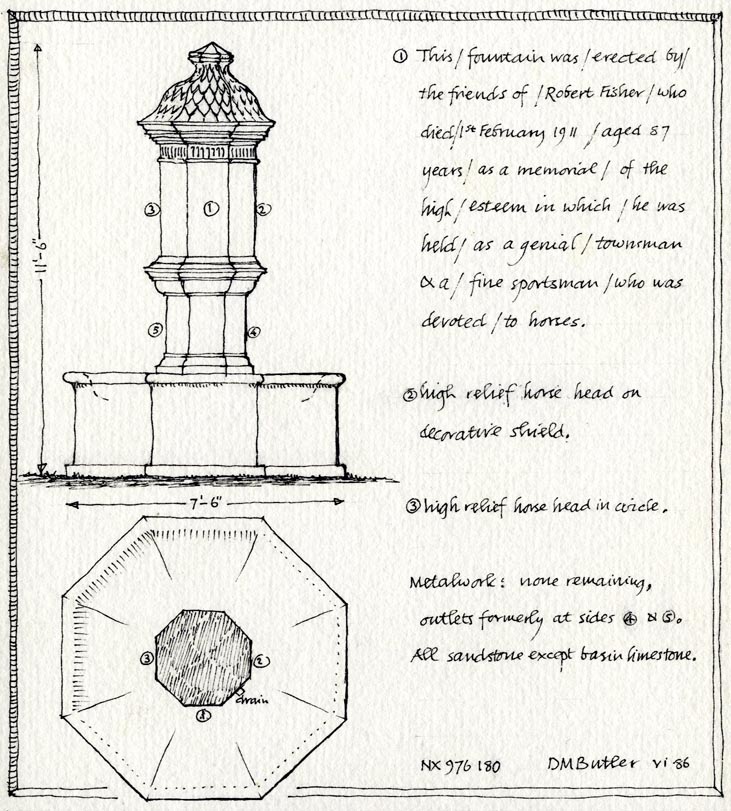 ① This / fountain was / erected by /
the friends of / Robert Fisher / who
died / 1st February 1911 / aged 87
years / as a memorial / of the
high / esteem in which / he was
held / as a genial / townsman
& a / fine sportsman / who was
devoted / to horses.
② high relief horse head on
decorative shield.
③ high relief horse head in circle.
Metalwork: none remaining,
outlets formerly at sides ④ & ⑤.
All sandstone except basin limestone.
NX 976 180 DMButler vi·86
11'-6"
③ ① ②
⑤ ④
7'-6"
③ ②
drain
①